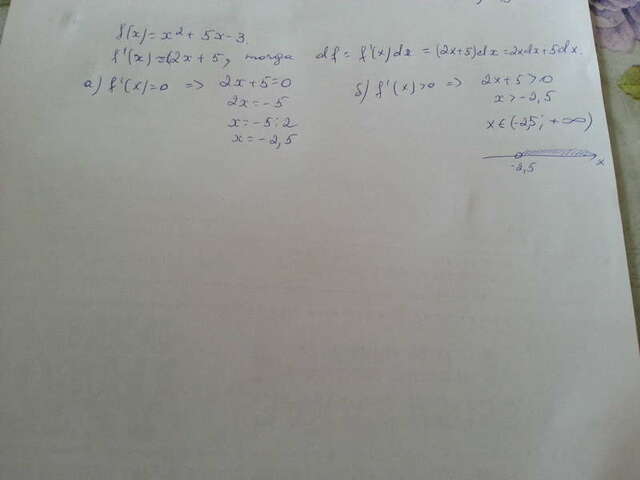 f(x)=x²+5x-3.
f'(x)=(2x+5, тогда df=f'(x)dx=(2x+5)dx=2xdx+5dx.
а) f'(x)=0 => 2x+5=0
2x=-5
x=-5:2
x=-2,5
б) f'(x)>0 => 2x+5>0
x>-2,5
x∈(-2,5; +∞)
-2,5 x